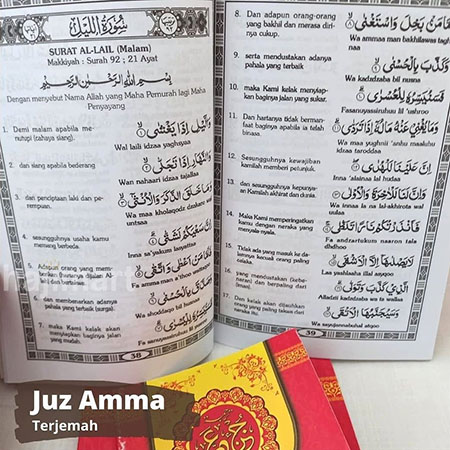 سُوْرَةُ اللَّيْلِ
SURAT AL-LAIL (Malam)
Makkiyah : Surah 92 ; 21 Ayat
بِسْمِ اللهِ الرَّحْمٰنِ الرَّحِيْمِ
Dengan menyebut Nama Allah yang Maha Pemurah lagi Maha
Penyayang
1. Demi malam apabila me-
nutupi (cahaya siang).
وَالَّيْلِ اِذَا يَغْشٰى
Wal laili idzaa yaghsyaa
2. dan siang apabila benderang
وَالنَّهَارِ اِذَا تَجَلّٰى
Wan nahaari idzaa tajallaa
3. dan penciptaan laki dan pe-
rempuan.
وَمَا خَلَقَ الذَّكَرَ وَالْاُنْثٰى
Wa maa kholaqadz dzakaro wal
untsaa
4. sesungguhnya usaha kamu
memang berbeda.
اِنَّ سَعْيَكُمْ لَشَتّٰى
Inna sa'yakum lasyattaa
5. Adapun orang yang mem-
فَاَمَّا مَنْ اَعْطٰى وَاتَّقٰى
6. dan membenarkan adanya
pahala yang terbaik (surga).
وَصَدَّقَ بِالْحُسْنٰى
Wa shoddaqo bil husnaa
7. maka Kami kelak akan
menyiapkan baginya jalan
yang mudah.
فَسَنُيَسِّرُهٗ لِلْيُسْرٰى
38
8. Dan adapun orang-orang
yang bakhil dan merasa diri-
nya cukup.
وَاَمَّا مَنْ بَخِلَ وَاسْتَغْنٰى
Wa ammaa man bakhilawas tagh
naa
9. serta mendustakan adanya
pahala yang terbaik
وَكَذَّبَ بِالْحُسْنٰى
Wa kadzdzaba bil husnaa
10. maka Kami kelak menyiap-
kan baginya jalan yang sukar.
فَسَنُيَسِّرُهٗ لِلْعُسْرٰى
Fasanuyassiruhuu lil 'usroo
11. Dan hartanya tidak berman-
faat baginya apabila ia telah
binasa.
وَمَا يُغْنِيْ عَنْهُ مَالُهٗٓ اِذَا تَرَدّٰى
Wa maa yughnii 'anhu maaluhuu idzaa
taroddaa
12. Sesungguhnya kewajiban
kamilah memberi petunjuk.
اِنَّ عَلَيْنَا لَلْهُدٰى
Inna 'alainaa lal hudaa
13. dan sesungguhnya kepunya-
an Kamilah akhirat dan dunia.
وَاِنَّ لَنَا لَلْاٰخِرَةَ وَالْاُوْلٰى
Wa innaa la na lal-akhirota wal
uulaa
14. Maka Kami memperingatkan
kamu dengan neraka yang
menyala-nyala.
فَاَنْذَرْتُكُمْ نَارًا تَلَظّٰى
Fa andzartukum naaron tala
dhdhoo
15. Tidak ada yang masuk ke da-
lamnya kecuali orang paling
celaka.
لَا يَصْلٰىهَآ اِلَّا الْاَشْقٰى
Laa yashlaaha illal asyqoo
16. yang mendustakan (kebe-
naran) dan berpaling dari
الَّذِيْ كَذَّبَ وَتَوَلّٰى
Alladzi kadzdzaba wa ta wallaa
17. Dan kelak akan dijauhkan
orang yang paling taqwa dari
neraka itu.
وَسَيُجَنَّبُهَا الْاَتْقٰى
Wa sayujannabuhal atqoo
39
Juz Amma
Terjemah